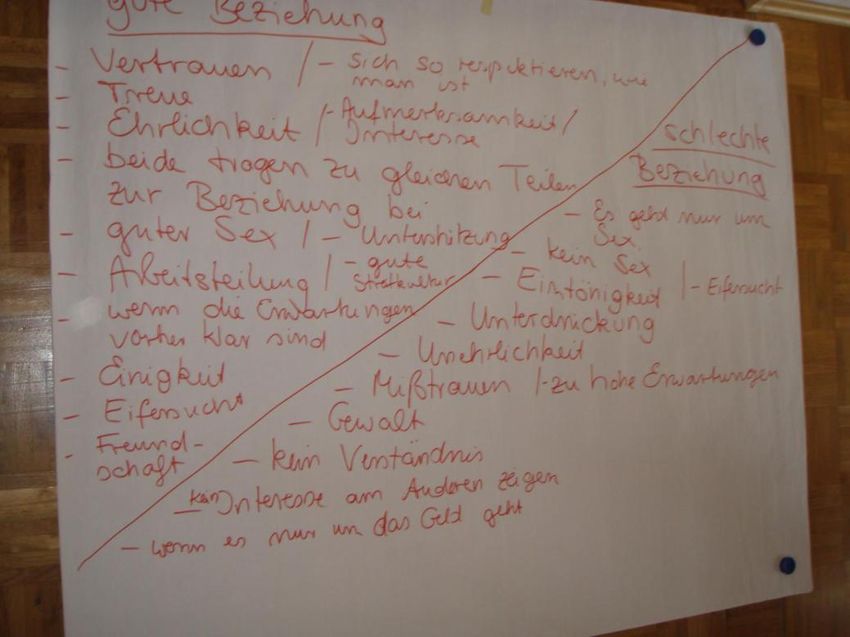 gute Beziehung
- Vertrauen / - sich so respektieren, wie
man ist
- Treue
- Ehrlichkeit / - Aufmerksamkeit /
Interesse
- beide tragen zu gleichen Teilen
zur Beziehung bei
- guter Sex / - Unterstützung
- Arbeitsteilung / - gute
Streitkultur
- wenn die Erwartungen
vorher klar sind
- Einigkeit
- Eifersucht
- Freund-
schaft
schlechte
Beziehung
- Es geht nur um
Sex
- kein Sex
- Eintönigkeit / - Eifersucht
- Unterdrückung
- Unehrlichkeit
- Mißtrauen / - zu hohe Erwartungen
- Gewalt
- kein Verständnis
- kein Interesse am Anderen zeigen
- wenn es nur um das Geld geht